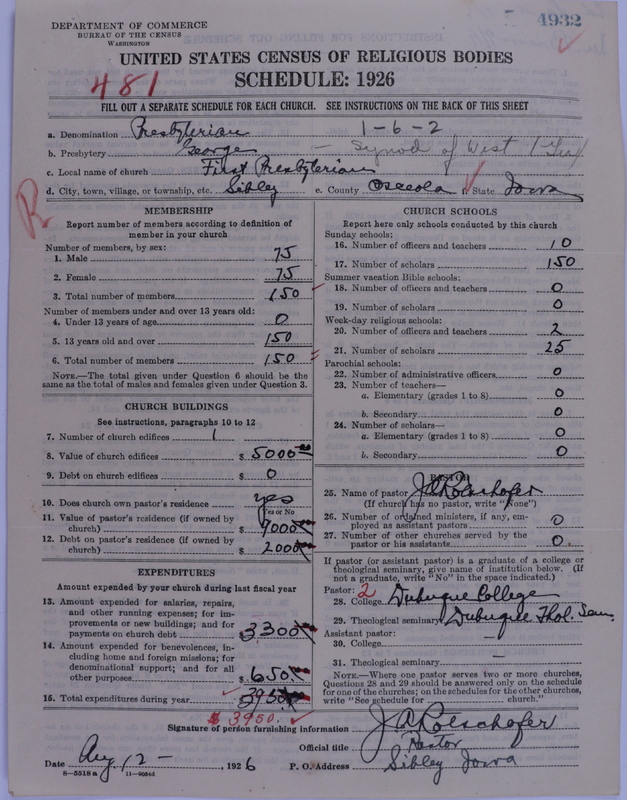 DEPARTMENT OF COMMERCE
BUREAU OF THE CENSUS
WASHINGTON
4932
UNITED STATES CENSUS OF RELIGIOUS BODIES
SCHEDULE: 1926
481
FILL OUT A SEPARATE SCHEDULE FOR EACH CHURCH. SEE INSTRUCTIONS ON THE BACK OF THIS SHEET
a. Denomination Presbyterian 1-6-2
b. Presbytery George - Synod of West (Ger)
c. Local name of church First Presbyterian
d. City, town, village, or township, etc. Sibley e. County Osceola f. State Iowa
R
MEMBERSHIP
Report number of members according to definition of
member in your church
Number of members, by sex:
1. Male 75
2. Female 75
3. Total number of members 150
Number of members under and over 13 years old:
4. Under 13 years of age 0
5. 13 years old and over 150
6. Total number of members 150
NOTE.—The total given under Question 6 should be
same as the total of males and females given under Question 3.
CHURCH BUILDINGS
See instructions, paragraphs 10 to 12
7. Number of church edifices 1
8. Value of church edifices $ 5000
9. Debt on church edifices $ 0
10. Does church own pastor's residence yes
Yes or No
11. Value of pastor's residence (if owned by
church) $ 7000
12. Debt on pastor's residence (if owned by
church) $ 2000
EXPENDITURES
Amount expended by your church during last fiscal year
13. Amount expended for salaries, repairs,
and other running expenses; for im-
provements or new buildings; and for
payments on church debt $ 3300
14. Amount expended for benevolences, in-
cluding home and foreign missions; for
denominational support; and for all
other purposes $ 650
15. Total expenditures during year 3950
$ 3950.
CHURCH SCHOOLS
Report here only schools conducted by this church
Sunday schools:
16. Number of officers and teachers 10
17. Number of scholars 150
Summer vacation Bible schools:
18. Number of officers and teachers 0
19. Number of scholars 0
Week-day religious schools:
20. Number of officers and teachers 2
21. Number of scholars 25
Parochial schools:
22. Number of administrative officers 0
23. Number of teachers—
a. Elementary (grades 1 to 8) 0
b. Secondary 0
24. Number of scholars—
a. Elementary (grades 1 to 8) 0
b. Secondary 0
PASTOR
25. Name of pastor J A Rotschafer
(If church has no pastor, write "None")
26. Number of ordained ministers, if any, em-
ployed as assistant pastors 0
27. Number of other churches served by the
pastor or his assistants 0
If pastor (or assistant pastor) is a graduate of a college or
theological seminary, give name of institution below. (If
not a graduate, write "No" in the space indicated.)
Pastor: 2
28. College Dubuque College
29. Theological seminary Dubuque Thol. Sem.
Assistant pastor:
30. College —
31. Theological seminary —
NOTE.—Where one pastor serves two or more churches,
Questions 28 and 29 should be answered only on the schedule
for one of the churches; on the schedules for the other churches,
write "See schedule for church."
Signature of person furnishing information J A Rotschafer
Official title Pastor
Date Aug 12 - , 1926 P. O. Address Sibley Iowa
8—5518 a 11—9054d